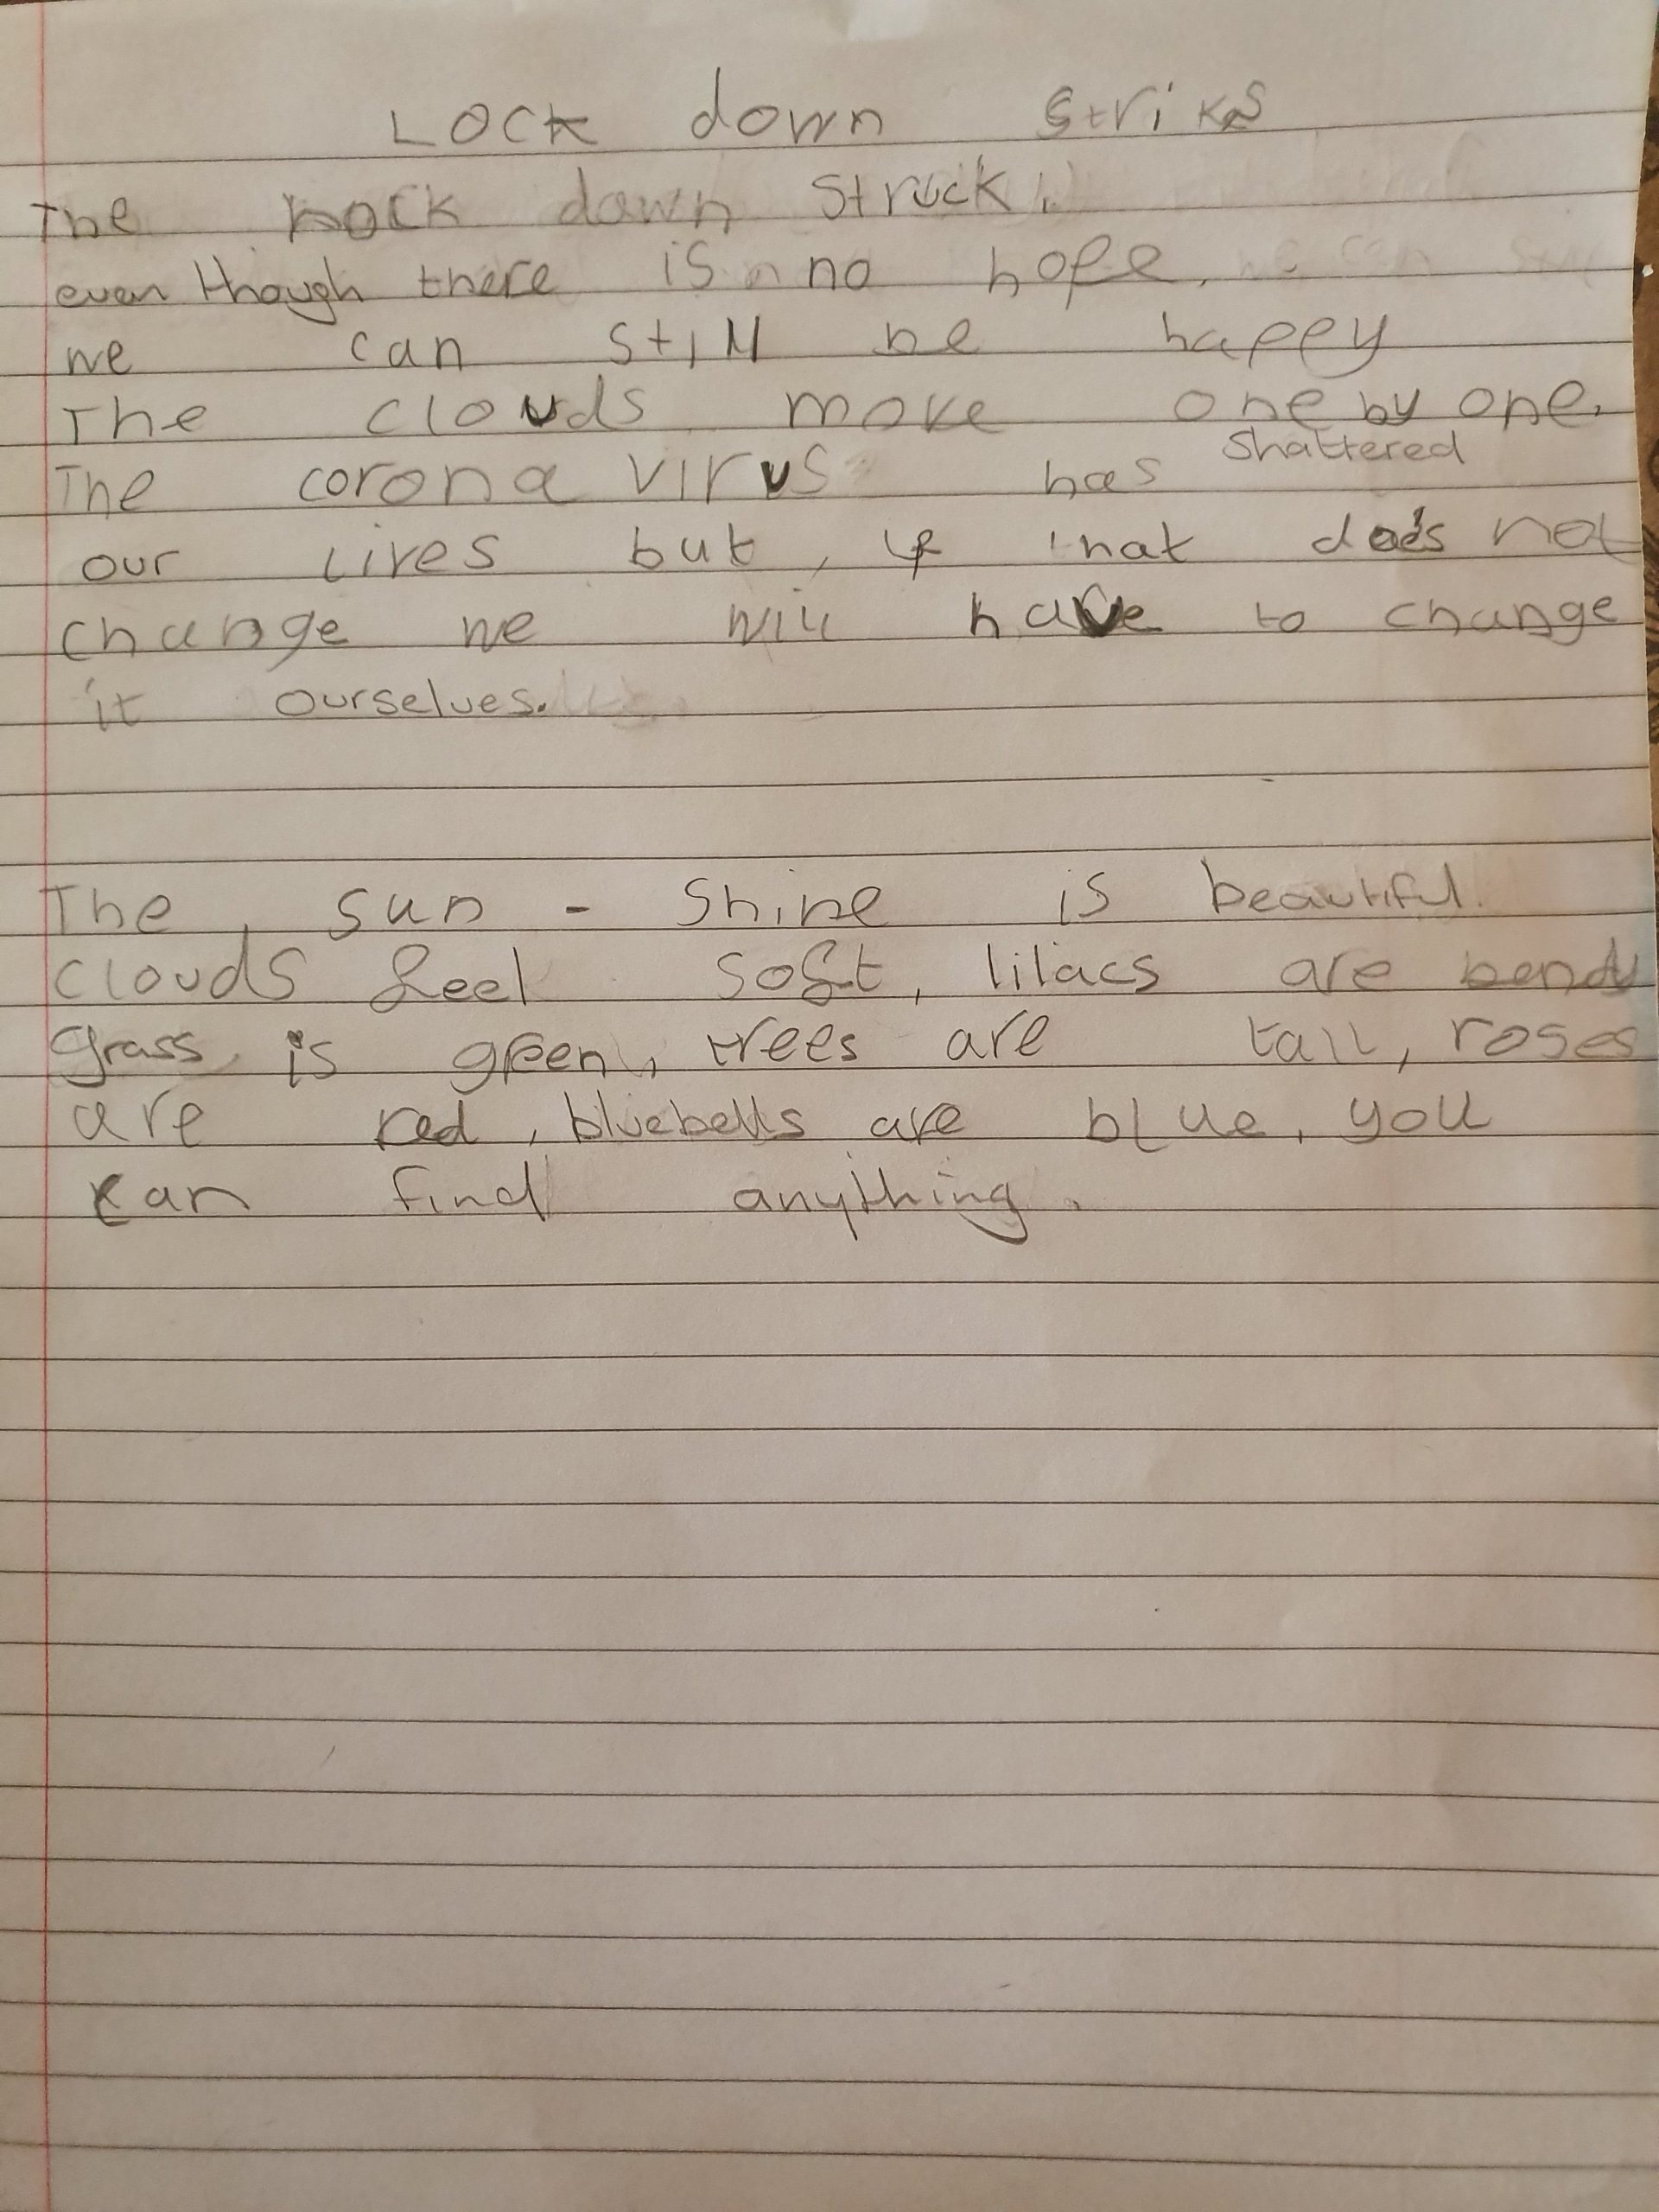 Lock down strikes
The lock down struck!
even though there is no hope,
we can still be happy
The clouds move one by one.
The corona virus has shattered
our lives but, if that does not
change we will have to change
it ourselves.
The sun - shine is beautiful.
clouds feel soft, lilacs are bendy
grass is green, trees are tall, roses
are red, bluebells are blue, you
can find anything.